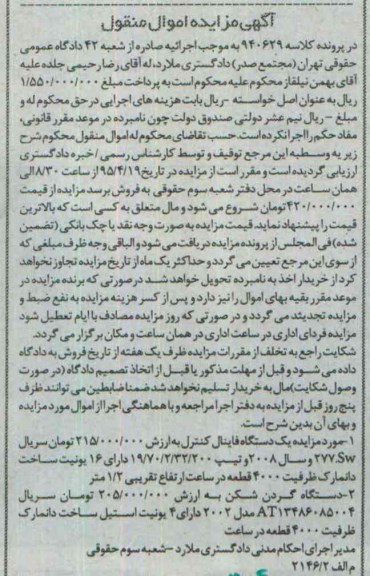 آگهی مزایده اموال منقول
در پرونده کلاسه ۹۴۰۶۲۹ به موجب اجرائیه صادره از شعبه ۴۲ دادگاه عمومی
حقوقی تهران (مجتمع صدر) دادگستری ملارد، له آقای رضا رحیمی جلده علیه
آقای بهمن نیلفاز محکوم علیه محکوم است به پرداخت مبلغ ۱/۵۵۰/۰۰۰/۰۰۰
ریال به عنوان اصل خواسته – ریال بابت هزینه های اجرایی در حق محکوم له و
مبلغ – ریال نیم عشر دولتی صندوق دولت چون نامبرده در موعد مقرر قانونی،
مفاد حکم را اجرا نکرده است. حسب تقاضای محکوم له اموال منقول محکوم شرح
زیر به وسطیه این مرجع توقیف و توسط کارشناس رسمی / خبره دادگستری
ارزیابی گردیده است و مقرر است از مزایده در تاریخ ۹۵/۴/۱۹ از ساعت ۸/۳۰ الی
همان ساعت در محل دفتر شعبه سوم حقوقی به فروش برسد مزایده از قیمت
۴۲۰/۰۰۰/۰۰۰ تومان شروع می شود و مال متعلق به کسی است که بالاترین
قیمت را پیشنهاد نماید. قیمت مزایده به صورت وجه نقد یا چک بانکی (تضمین
شده) فی المجلس از پرونده مزایده دریافت می شود و الباقی وجه ظرف مبلغی که
از سوی این مرجع تعیین می گردد و حداکثر یک ماه از تاریخ مزایده تجاوز نخواهد
کرد از خریدار اخذ به نامبرده تحویل خواهد شد. در صورتی که برنده مزایده در
موعد مقرر بقیه بهای اموال را نپر دارد و پس از کسر هزینه مزایده به نفع ضبط و
مزایده تجدیدند می گردد و در صورتی که روز مزایده مصادف با ایام تعطیل شود
مزایده فردای اداری در ساعت اداری در همان ساعت و مکان برگزار می گردد.
شکایت راجع به تخلف از مقررات مزایده ظرف یک هفته از تاریخ فروش به دادگاه
داده می شود و قبل از مهلت مذکور یا قبل از اتخاذ تصمیم دادگاه (در صورت
وصول شکایت) مال به خریدار تسلیم نخواهد شد ضمنا ضابطین می توانند ظرف
پنج روز قبل از مزایده به دفتر اجرا مراجعه و با هماهنگی اجرا از اموال مورد مزایده
و بهای آن بدین شرح است.
۱-مورد مزایده یک دستگاه فاینال کنترل به ارزش ۲۱۵/۰۰۰/۰۰۰ تومان سریال
۲۷۷.Sw و سال ۲۰۰۸ و تیپ ۱۹/۷۰/۲/۳۲/۲۰۰ دارای ۱۶ یونیت ساخت
دانمارک ظرفیت ۴۰۰۰ قطعه در ساعت ارتفاع تقریبی ۱/۲ متر
۲-دستگاه گردن شکن به ارزش ۲۰۵/۰۰۰/۰۰۰ تومان سریال
AT۱۳۴۸۶۰۸۵۰۰۴ مدل ۲۰۰۲ دارای ۴ یونیت استیل ساخت دانمارک
ظرفیت ۴۰۰۰ قطعه در ساعت
مدیر اجرای احکام مدنی دادگستری ملارد –شعبه سوم حقوقی
م الف ۲۱۴۶/۲